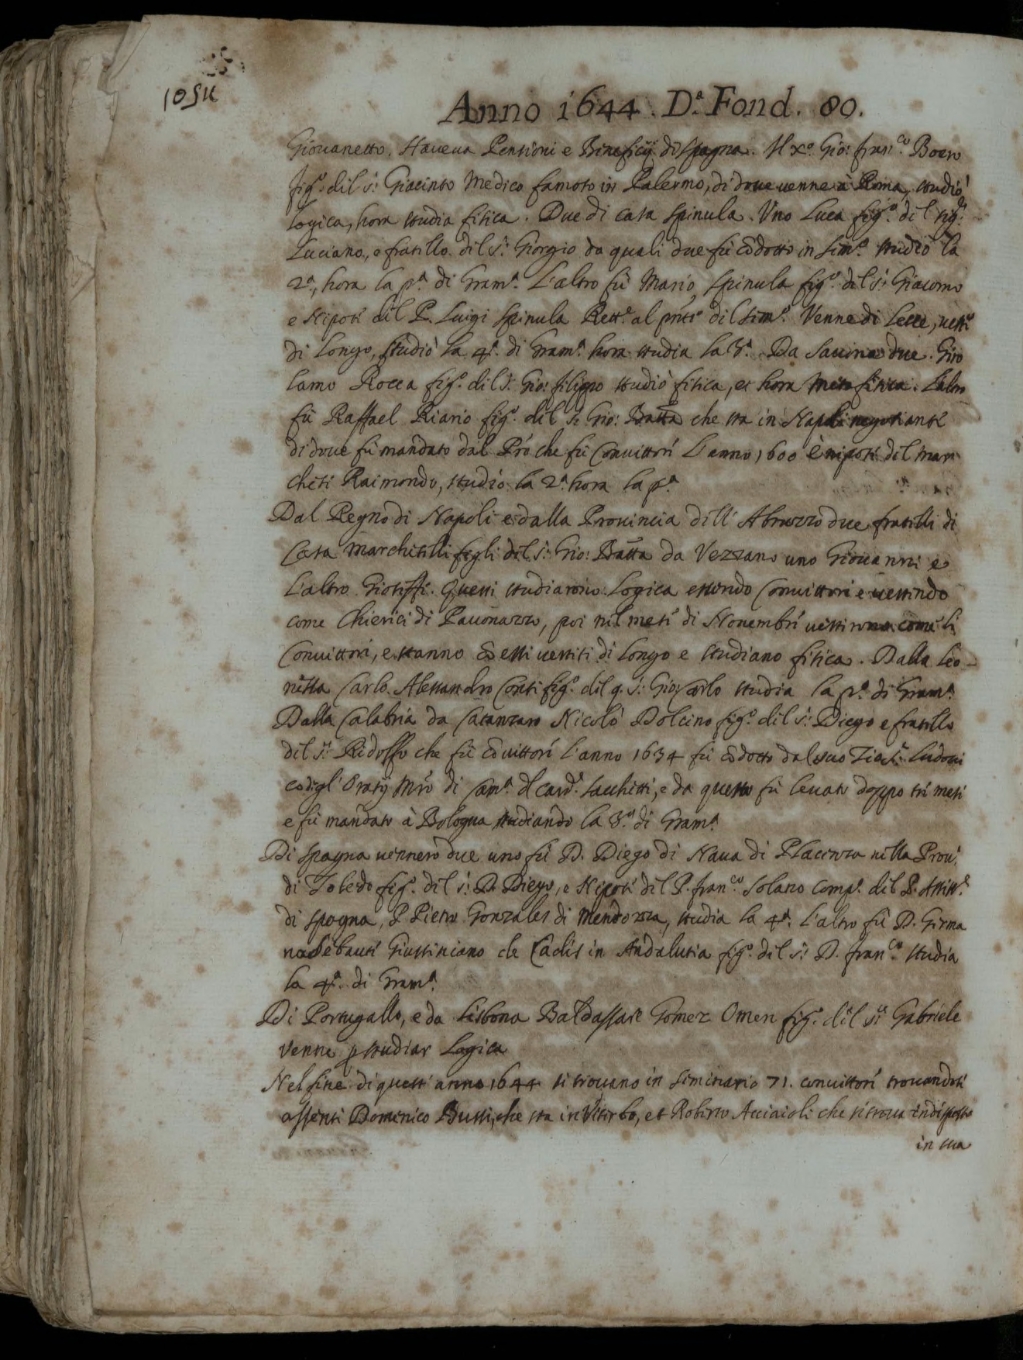 Anno 1644. D.ª Fond. 80.
Giovanetto. Haveva Pensioni e Beneficij di Spagna. Il x.º Gio: fran.co Boero
fig.º del s.r Giacinto Medico famoso in Palermo, di dove venne à Roma, studiò
logica, hora studia fisica. Due di casa Spinula. Uno Luca fig.º del sig.r
Luciano, e fratello del s.r Giorgio da quali due fù cõdotto in Sem.º studiò la
2.ª, hora la p.ª di Gram.ª L'altro fù Mario Spinula fig.º del s.r Giacomo
e Nipote del P. Luigi Spinula Rett.e al pñte del Sem.º Venne di Lecce, vestì
di longo, studiò la 4.ª di Gram.ª hora studia la 3.ª Da Savina due. Giro
lamo Rocca fig.º del s. Gio: filippo studiò fisica, et hora Metafisica. L'altro
fù Raffael Riario fig.º del s. Gio: Batta che sta in Napoli negotiante
di dove fù mandato dal Prẽ che fù Convittore l'anno 1600 è nipote del Mar
chese Raimondo, studiò la 2.ª hora la p.ª
Dal Regno di Napoli e dalla Provincia dell'Abruzzo due fratelli di
Casa Marchitelli figli del s.r Gio: Batta da Vezzano uno Giovanni e
l'altro Gioseffe. Questi studiarono Logica essendo Convittori e vestendo
come Chierici di Pavonazzo, poi nel mese di Novembre vestirono come li
Convittori, e stanno cõ essi vestiti di longo e studiano fisica. Dalla Leo-
nessa Carlo Alessandro Conti fig.º del q. s.r Gio: Carlo studia la p.ª di Gram.ª
Dalla Calabria da Catanzaro Nicolò Dolcino fig.º del s.r Diego e fratello
del s.r Ridolfo che fù cõvittore l'anno 1634 fù cõdotto dal suo Zio s.r Ludovi
co degl'Oratij Mrõ di Cam.ª del card. Sacchetti, e da questo fù levato doppo tre mesi
e fù mandato à Bologna studiando la 3.ª di Gram.ª
Di Spagna vennero due uno fù D. Diego di Nava di Placenza nella Prov.
di Toledo fig.º del s.r D. Diego, e Nipote del P. fran.co Solano Comp.º del P. Assist.e
di Spagna, P. Pietro Gonzales di Mendozza, studia la 4.ª L'altro fù D. Girma
no Giustiniano de Cadis in Andalusia fig.º del s.r D. fran.co studia
la 4.ª di Gram.ª
Di Portugallo, e da Lisbona Baldassare Gomez Omen fig.º del s.r Gabriele
venne p studiar Logica
Nel fine di questo anno 1644 si trovano in Seminario 71. convittori trovandosi
assenti Domenico Bussi, che sta in Viterbo, et Roberto Acciaioli che si trova indisposto
in sua